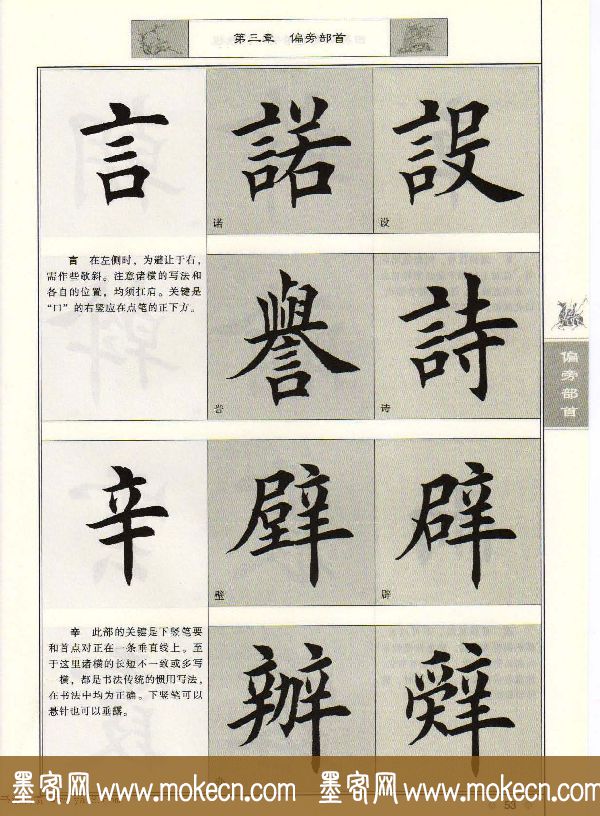 第三章 偏旁部首
言 諾 設
诺 设
言 在左侧时，为避让于右，
需作些欹斜。注意诸横的写法和
各自的位置，均须扛肩。关键是
“口”的右竖应在点笔的正下方。
譽 詩
誉 诗
偏旁部首
辛 壁 辟
壁 辟
辛 此部的关键是下竖笔要
和首点对正在一条垂直线上。至
于这里诸横的长短不一致或多写
一横，都是书法传统的惯用写法，
在书法中均为正确。下竖笔可以
悬针也可以垂露。
辦 辭
墨客网 www.mokecn.com 墨客网 www.mokecn.com
53